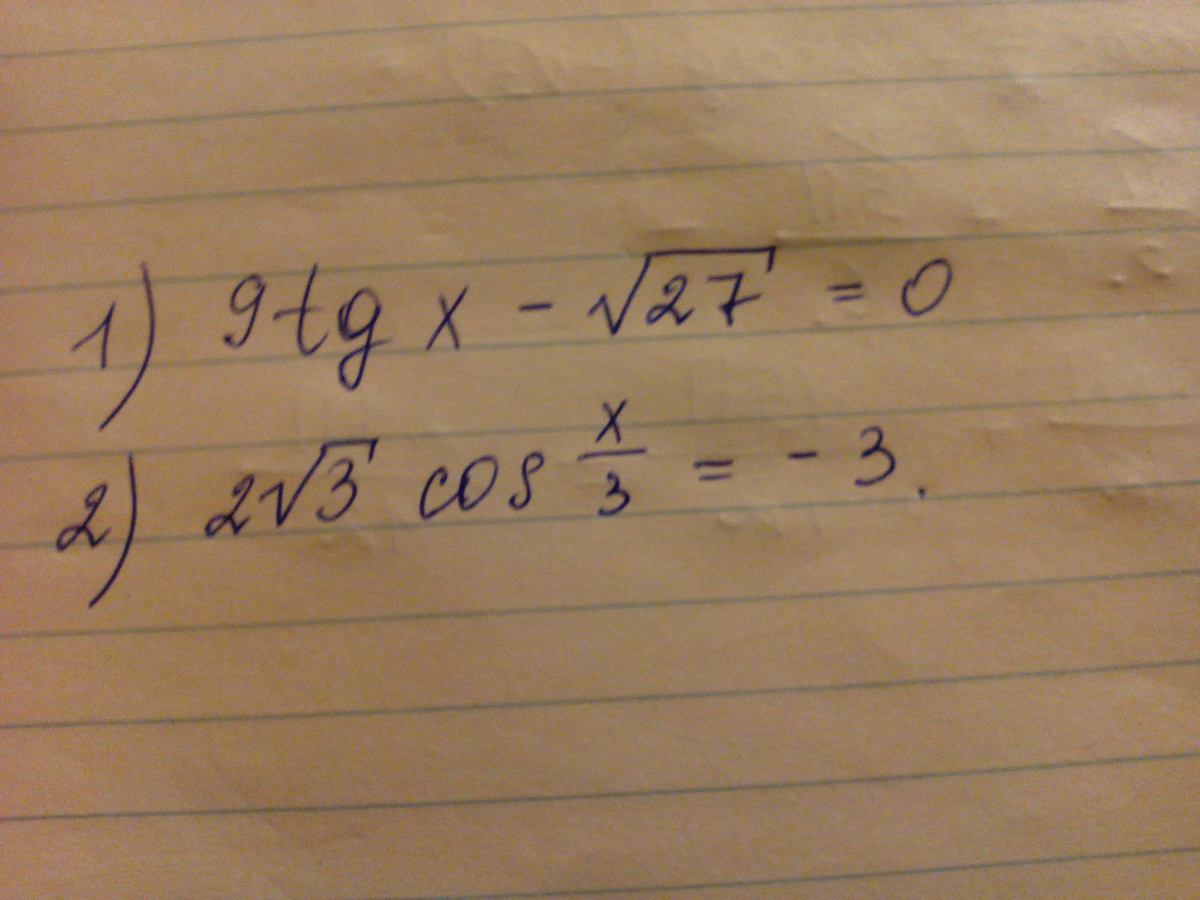 1) 9tg x - √27 = 0
2) 2√3 cos x/3 = - 3.